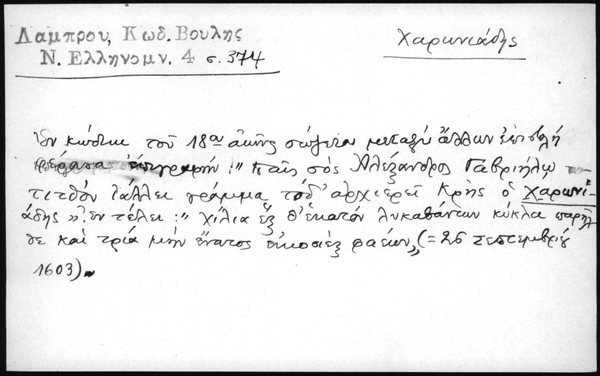 Λαμπρου, Κωδ. Βουλης
Ν. Ελληνομν, 4 σ. 374
Χαρωνιάδης
Ἐν κώδικι τοῦ 18ου αἰῶνος σώζεται μεταξὺ ἄλλων ἐπιστολὴ
φέρουσα ἐπιγραφήν: "Παῖς σὸς Ἀλέξανδρος Γαβριήλῳ
τυτθὸν ἰάλλει γράμμα τόδ' ἀρχιερεῖ Κρὴς ὁ Χαρωνι-
άδης". ἐν τέλει: "χίλια ἓξ θ' ἑκατὸν λυκαβάντων κύκλα παρῆλ
θε καὶ τρία μὴν ἔνατος εἰκοσιὲξ φαέων" (= 26 Σεπτεμβρίου
1603).